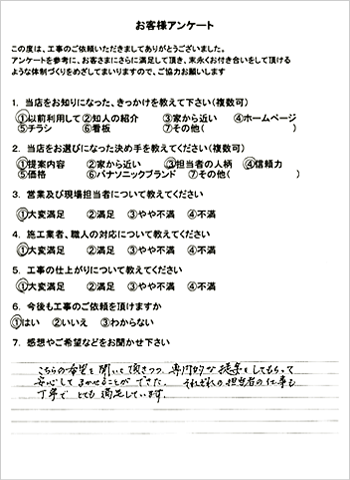 お客様アンケート
この度は、工事のご依頼いただきましてありがとうございました。
アンケートを参考に、お客さまにさらに満足して頂き、末永くお付き合いをして頂ける
ような体制づくりをめざしてまいりますので、ご協力お願いします
1. 当店をお知りになった、きっかけを教えて下さい(複数可)
①以前利用して ②知人の紹介 ③家から近い ④ホームページ
⑤チラシ ⑥看板 ⑦その他( )
2. 当店をお選びになった決め手を教えてください(複数可)
①提案内容 ②家から近い ③担当者の人柄 ④信頼力
⑤価格 ⑥パナソニックブランド ⑦その他( )
3. 営業及び現場担当者について教えてください
①大変満足 ②満足 ③やや不満 ④不満
4. 施工業者、職人の対応について教えてください
①大変満足 ②満足 ③やや不満 ④不満
5. 工事の仕上がりについて教えてください
①大変満足 ②満足 ③やや不満 ④不満
6. 今後も工事のご依頼を頂けますか
①はい ②いいえ ③わからない
7. 感想やご希望などをお聞かせ下さい
こちらの希望を聞いて頂きつつ、専門的な提案をしてもらって
安心してまかせることができた。 それぞれの担当者の仕事も
丁寧で とても満足しています。